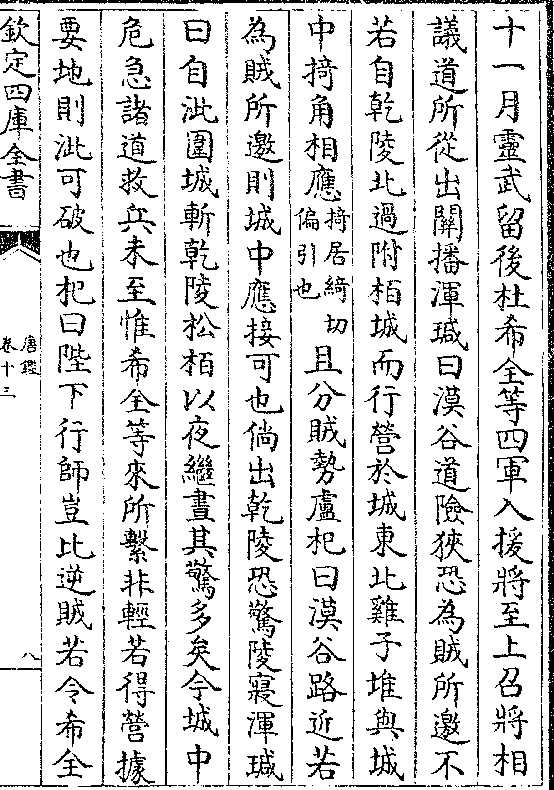 十一月靈武留後杜希全等四軍入援將至上召將相
議道所從出關播渾瑊曰漠谷道險狹恐為賊所邀不
若自乾陵北過附栢城而行營於城東北雞子堆與城
中掎角相應掎居綺切偏引也且分賊勢盧杞曰漠谷路近若
為賊所邀則城中應接可也倘出乾陵恐驚陵寢渾瑊
曰自泚圍城斬乾陵松栢以夜繼晝其驚多矣今城中
危急諸道救兵未至惟希全等來所繫非輕若得營據
要地則泚可破也杞曰陛下行師豈比逆賊若令希全
欽定四庫全書
唐鑑
卷十三
八